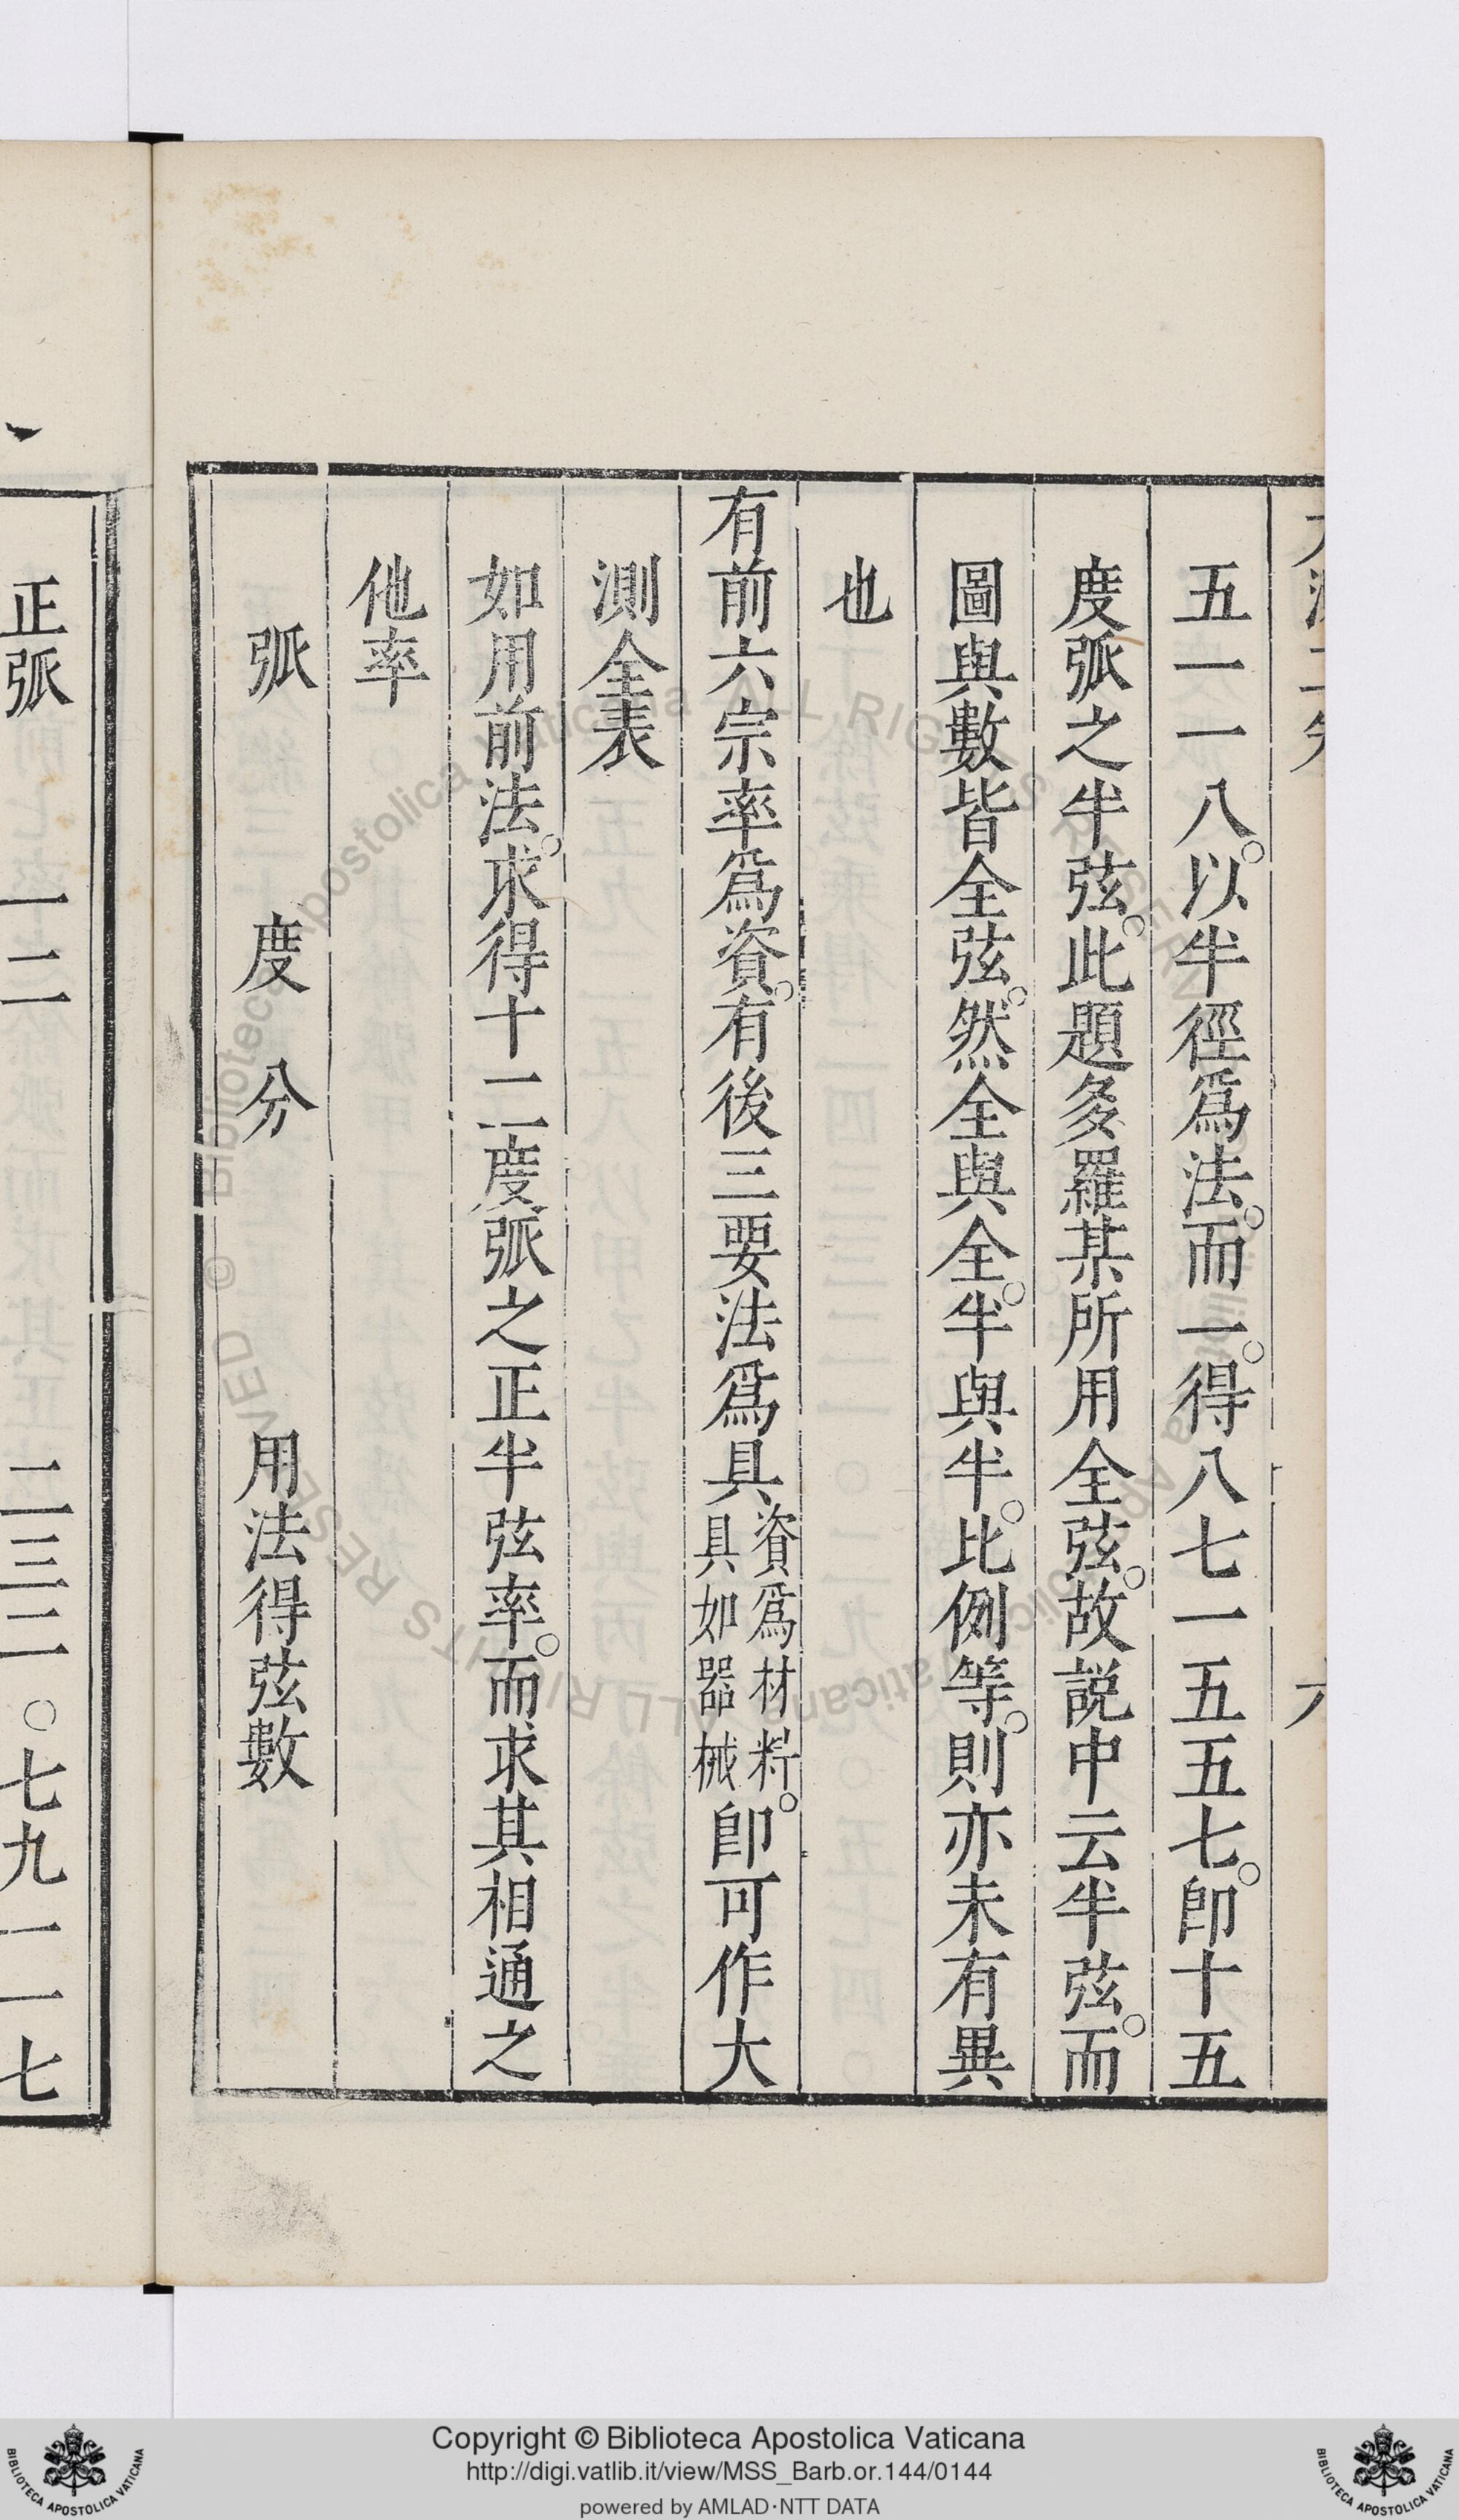 五一一八。以半徑爲法。而一。得八七一五五七。卽十五
度弧之半弦。此題多羅某所用全弦。故説中云半弦。而
圖與數皆全弦。然全與全。半與半。比例等。則亦未有異
也
有前六宗率爲資。有後三要法爲具資爲材料。具如器械卽可作大
測全表
如用前法。求得十二度弧之正半弦率。而求其相通之
他率
弧 度 分 用法得弦數
正弧 一二 二三二〇七九一一七
Copyright © Biblioteca Apostolica Vaticana
http://digi.vatlib.it/view/MSS_Barb.or.144/0144
powered by AMLAD·NTT DATA
BIBLIOTECA APOSTOLICA VATICANA
BIBLIOTECA APOSTOLICA VATICANA